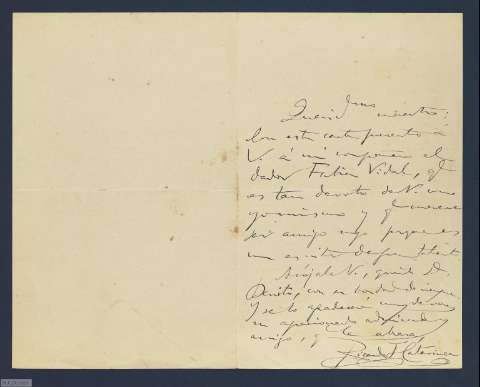 Querid maestro:
Con esta carta presento á
V. á mi compañero el
dador Fabián Vidal, qe
es tan devoto de V. como
yo mismo y qe merece
ser amigo suyo porque es
un escritor de gran talento
Acójale V., querido D.
Benito, con su bondad de siempre
y se lo agradecerá muy de veras
su apasionado admirador y
amigo, q le abraza
Ricardo J. Catarineu